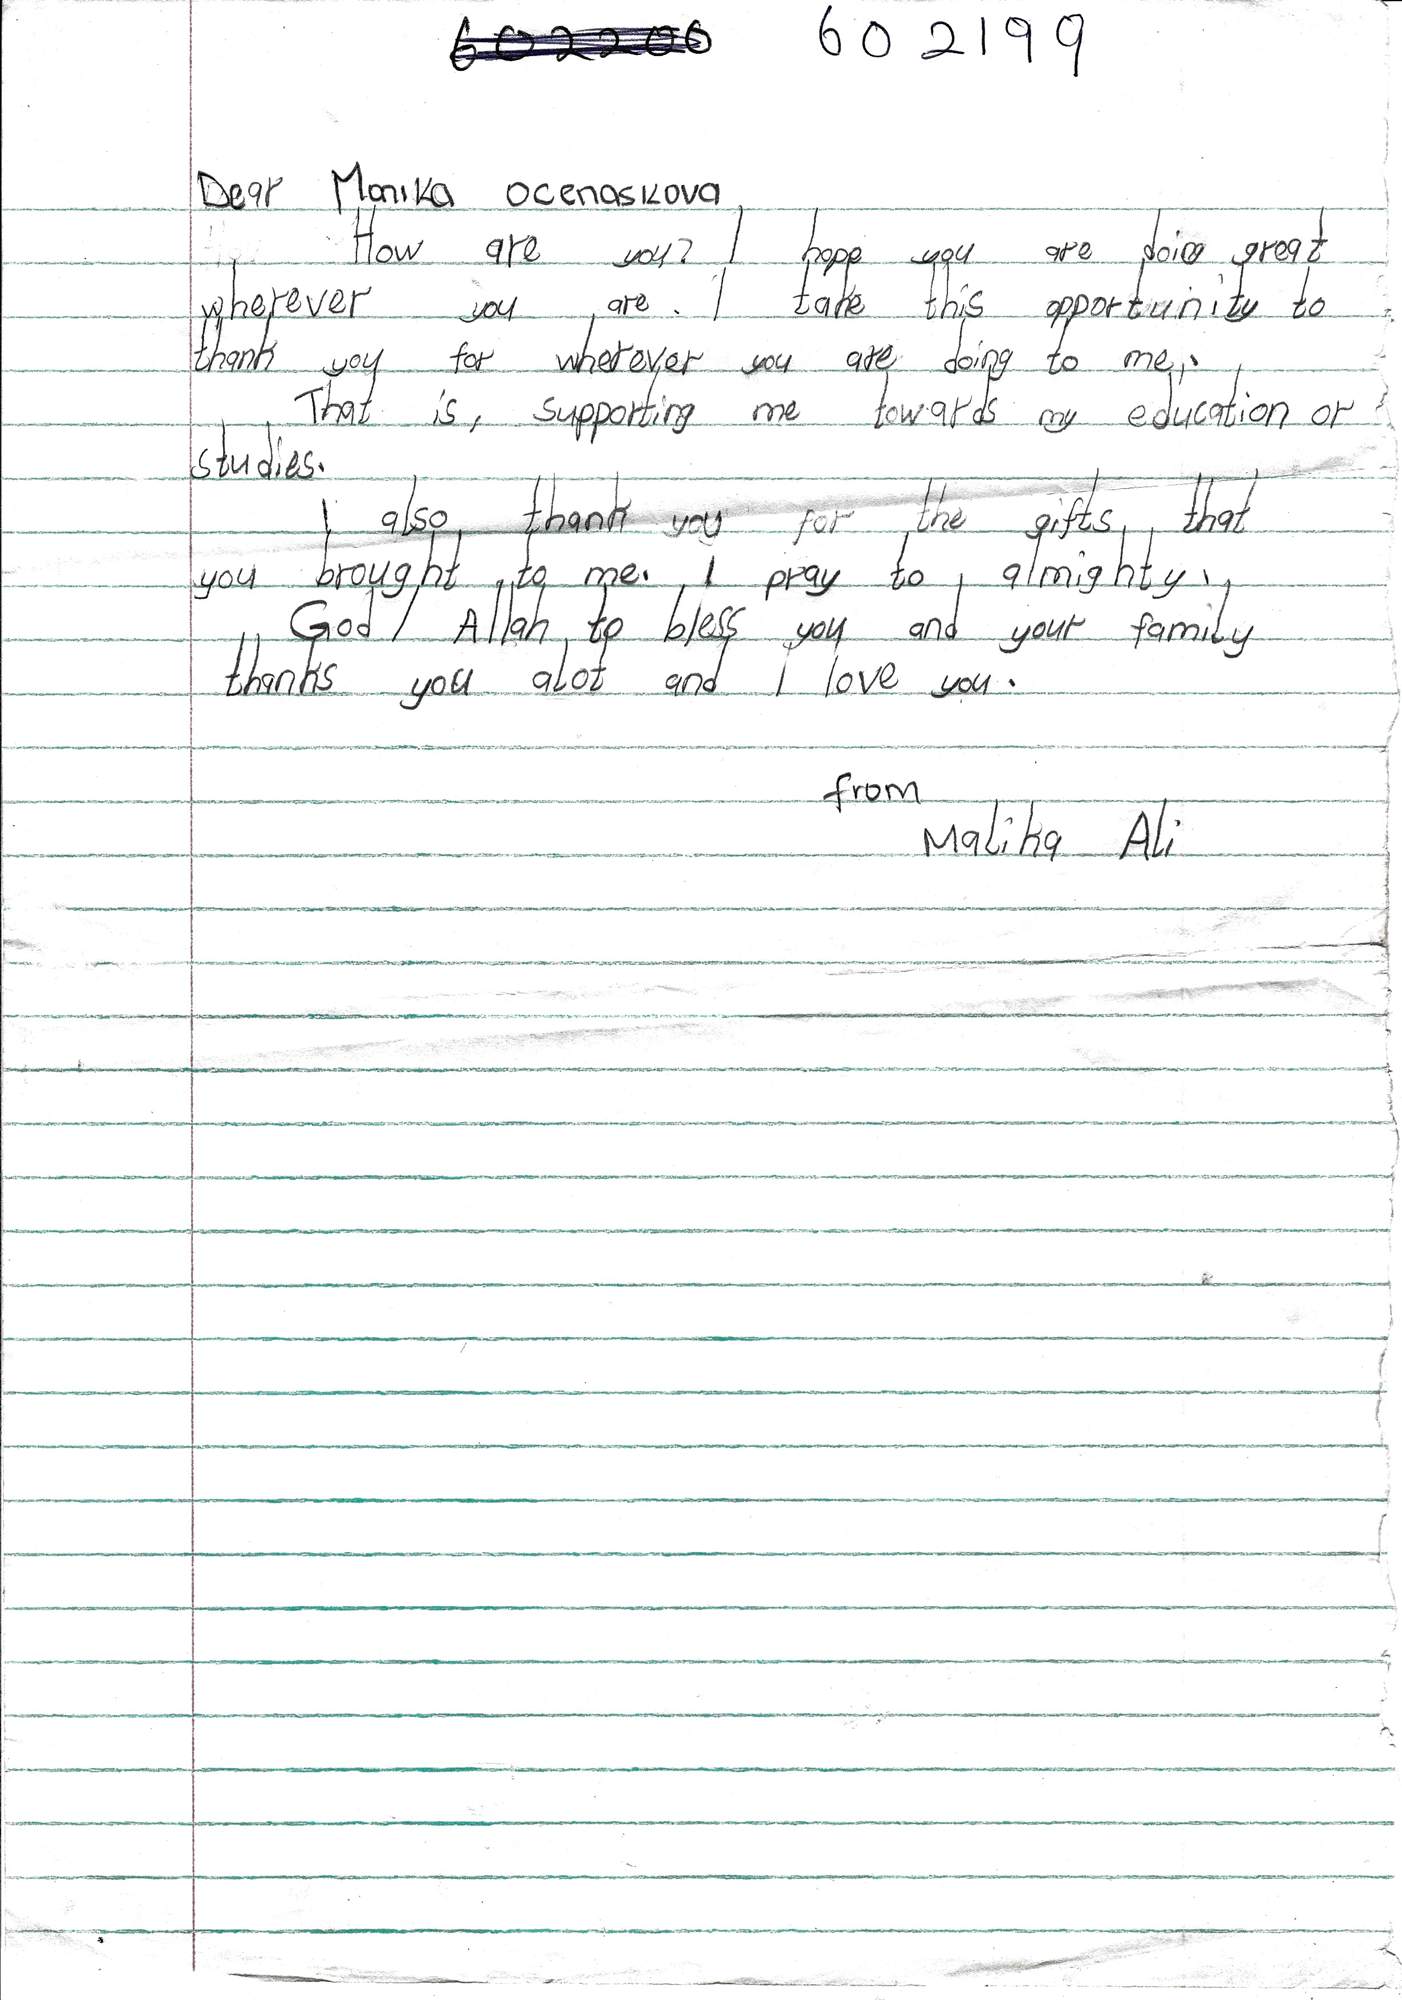 602200 602199
Dear Monika Ocenaskova
How are you? I hope you are doing great
wherever you are. I take this opportunity to
thank you for wherever you are doing to me.
That is, supporting me towards my education or
studies.
I also thank you for the gifts that
you brought to me. I pray to almighty.
God / Allah to bless you and your family
thanks you alot and I love you.
from
Malika Ali